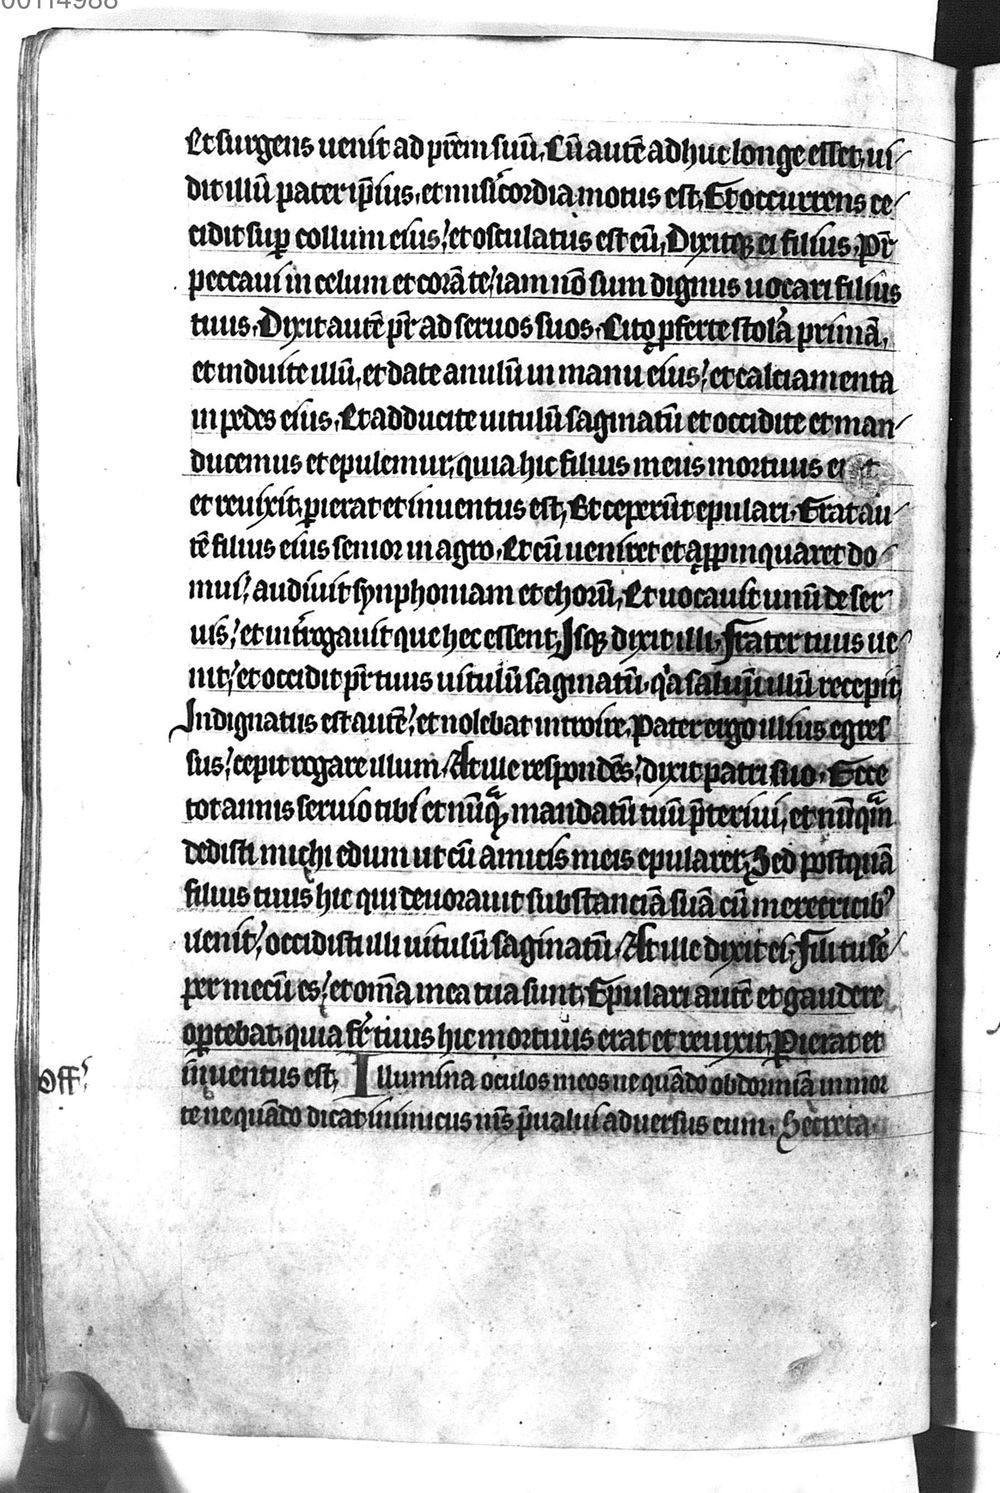 00114988
Et surgens uenit ad p̄rem suū. Cū autē adhuc longe esset, ui
dit illū pater ip̄ius, et misĩcordia motus est. Et occurrens ce
cidit suꝑ collum eius, et osculatus est eū. Dixitqꝫ ei filius. Pr̄
peccaui in celum et corā te, iam nō sum dignus uocari filius
tuus. Dixit autē pr̄ ad seruos suos. Cito ꝓferte stolā primā,
et induite illū, et date anulū in manu eius, et calciamenta
in pedes eius. Et adducite uitulū saginatū et occidite et man
ducemus et epulemur, quia hic filius meus mortuus e
et reuixit, ꝑierat et inuentus est. Et ceperūt epulari. Erat au
tē filius eius senior in agro. Et cū ueniret et aꝓpinquaret do
mui, audiuit synphoniam et chorū. Et uocauit unū de ser
uis, et intr̄ogauit que hec essent. Isqꝫ dixit illi. Frater tuus ue
nit, et occidit pr̄ tuus uitulū saginatū, qͥa saluū illū recepit.
Indignatus est autē, et nolebat introire. Pater ergo illius egres
sus, cepit rogare illum. At ille respondēs, dixit patri suo. Ecce
tot annis seruio tibi et nūqͣ mandatū tuū p̄teriui, et nūqͣm
dedisti michi edum ut cū amicis meis epularer. Sed postquā
filius tuus hic qui deuorauit substanciā suā cū meretricibꝰ
uenit, occidisti illi uitulū saginatū. At ille dixit ei. Fili tu sē
per mecū es, et om̄a mea tua sunt. Epulari autē et gaudere
oꝑtebat, quia fr̄ tuus hic mortuus erat et reuixit, Ꝑierat et
inuentus est. Illumina oculos meos ne quādo obdormiā in mor
Off̄
te ne quādo dicat inimicus m̄s p̄ualui aduersus eum. Secreta